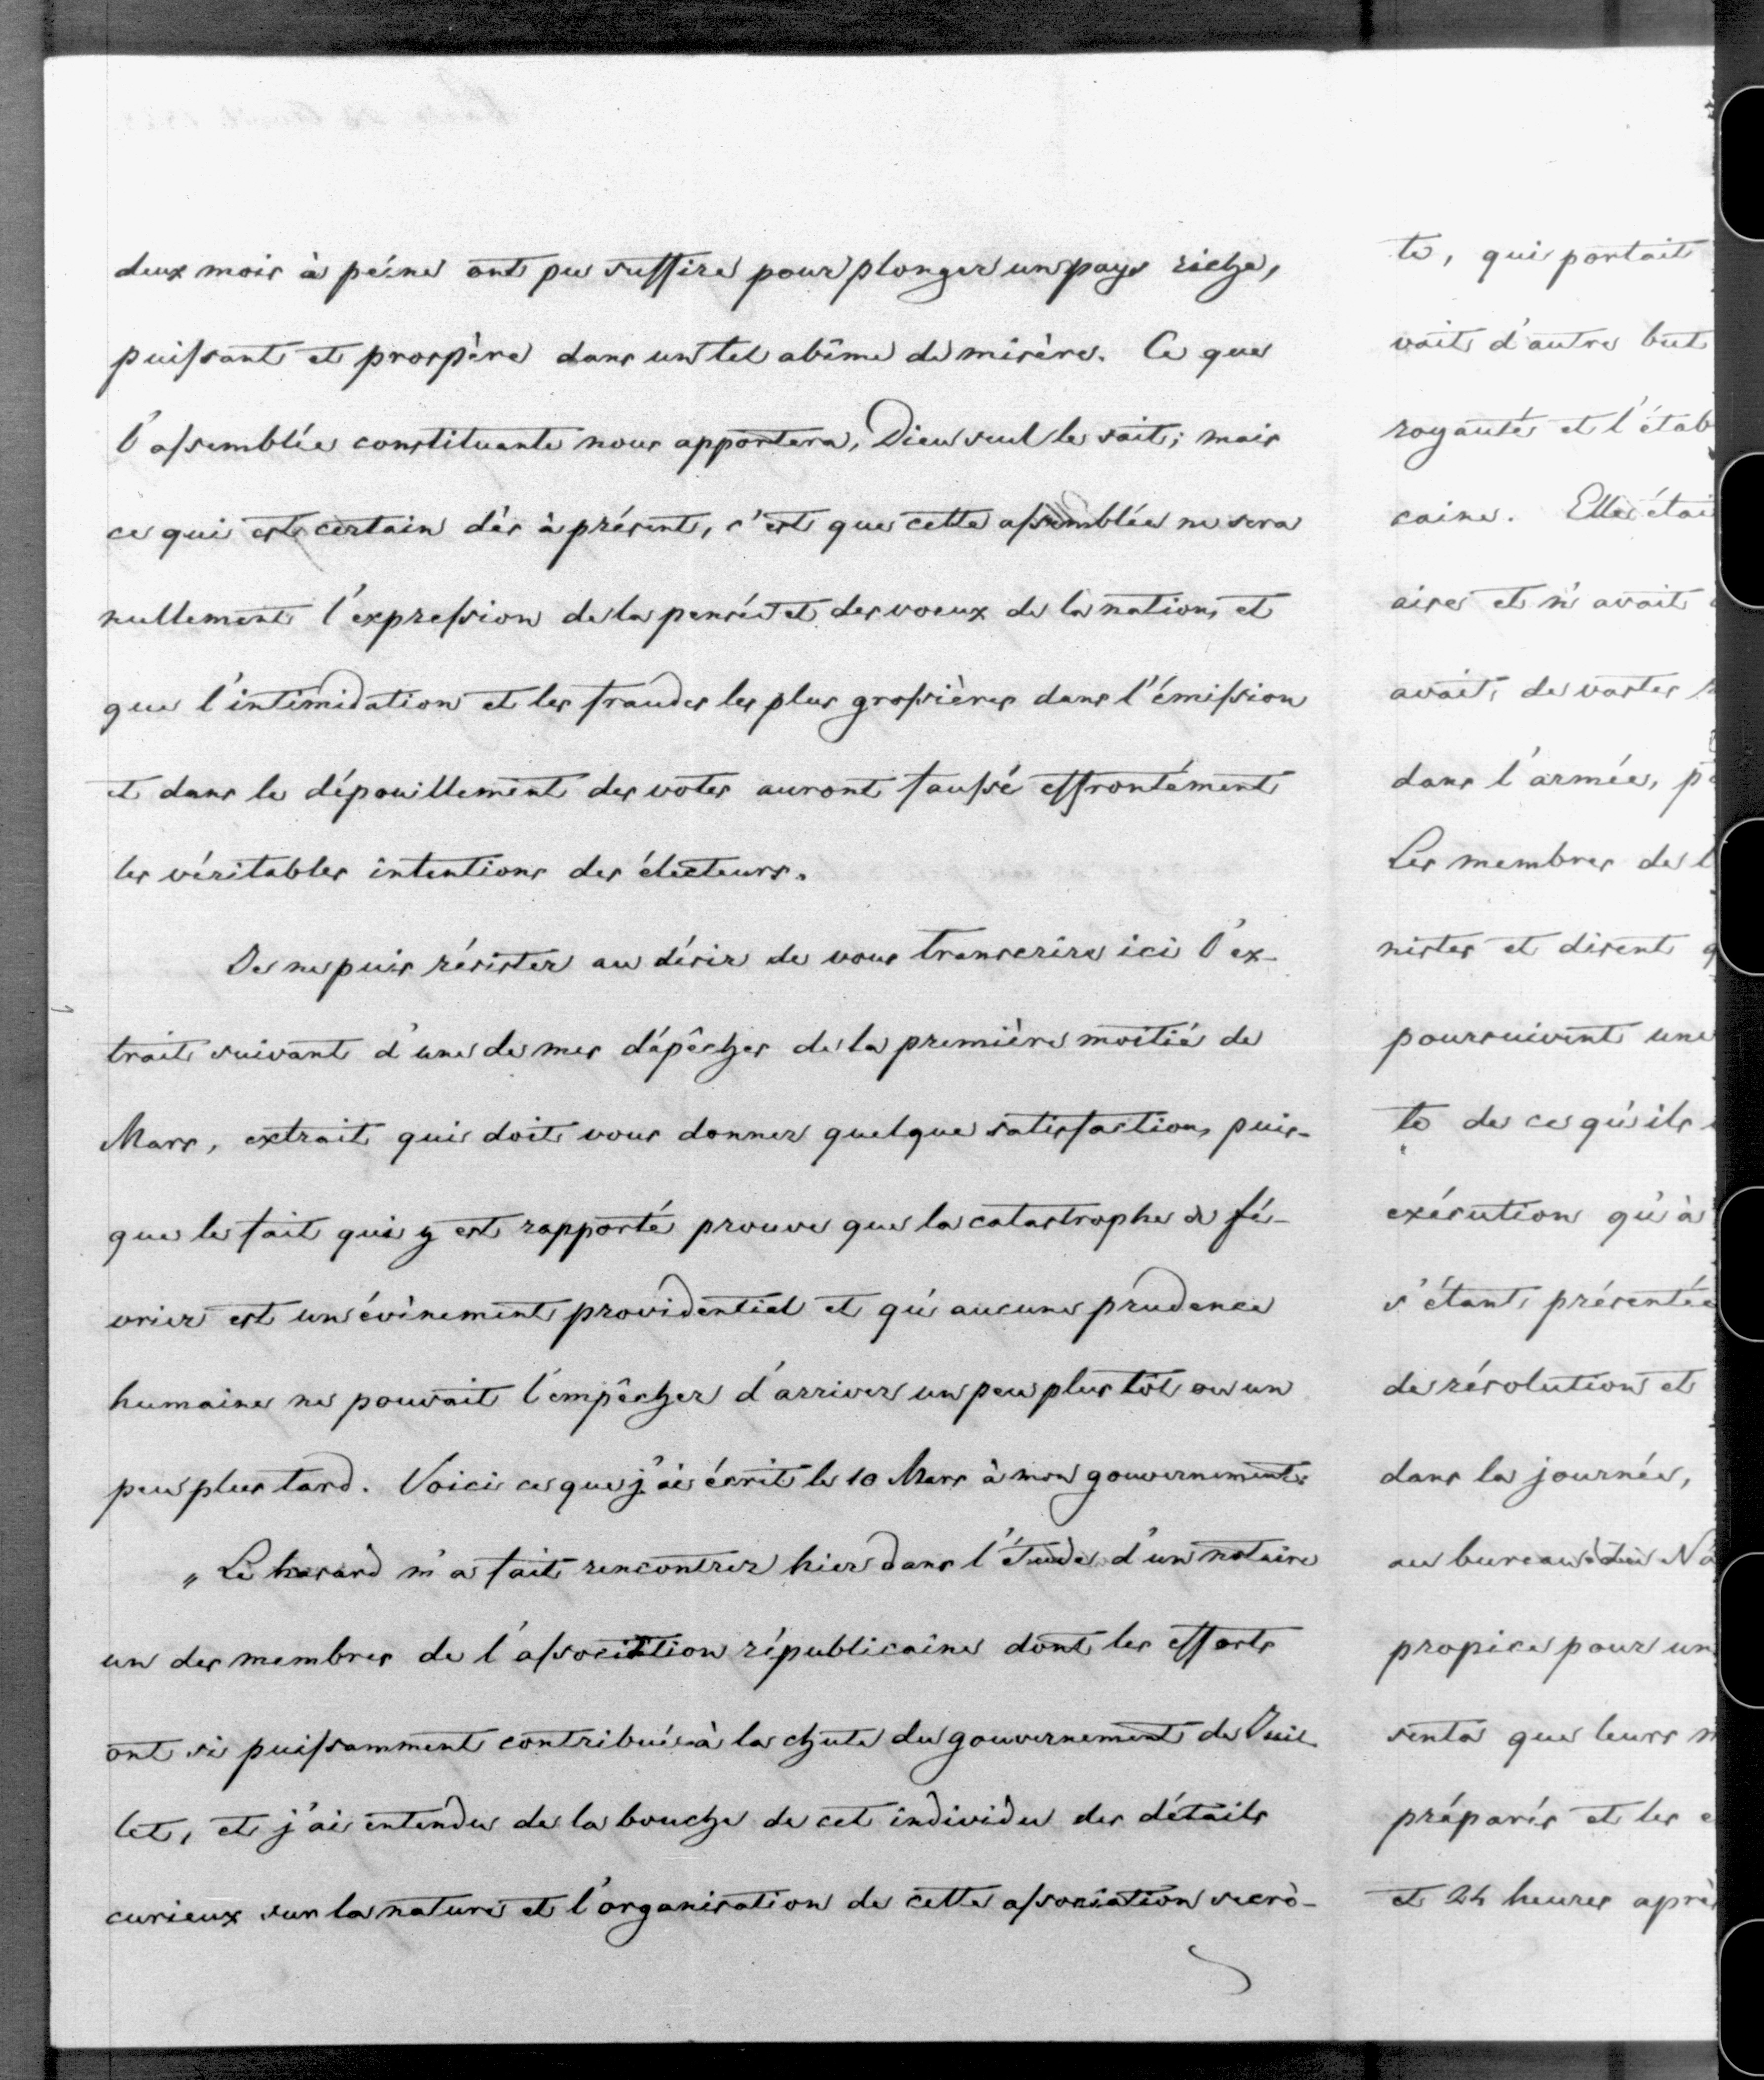 deux mois à peine ont pu suffire pour plonger un pays riche,
puissant et prospère dans un tel abîme de misère. Ce que
l'assemblée constituante nous apportera, Dieu seul le sait; mais
ce qui est certain dès à présent, c'est que cette assemblée ne sera
nullement l'expression de la pensée et des voeux de la nation, et
que l'intimidation et les fraudes les plus grossières dans l'émission
et dans le dépouillement des votes auront faussé effrontément
les véritables intentions des électeurs.
Je ne puis résister au désir de vous transcrire ici l'ex-
trait suivant d'une de mes dépêches de la première moitié de
Mars, extrait qui doit vous donner quelque satisfaction, puis-
que le fait qui y est rapporté prouve que la catastrophe de fé-
vrier est un évènement providentiel et qu'aucune prudence
humaine ne pouvait l'empêcher d'arriver un peu plus tôt ou un
peu plus tard. Voici ce que j'ai écrit le 10 Mars à mon gouvernement:
„Le hasard m'a fait rencontrer hier dans l'étude d'un notaire
un des membres de l'association républicaine dont les efforts
ont si puissamment contribué à la chute du gouvernement de Juil-
let, et j'ai entendu de la bouche de cet individu des détails
curieux sur la nature et l'organisation de cette association secrè-
te, qui portait
vait d'autre but
royauté et l'étab
caine. Elle étai
aise et n'avait
avait de vastes
dans l'armée, pa
Les membres de l
nistes et disent q
poursuivent une
te de ce qu'ils
exécution qu'à
s'étant présentée
de révolution et
dans la journée,
au bureau du Na
propice pour un
senta que leurs m
préparés et les e
et 24 heures après